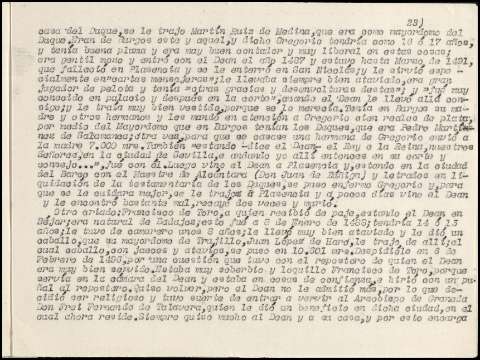 23)
casa del Duque, se le trajo Martín Ruiz de Medina, que era como mayordomo del
Duque, Eran de Burgos este y aquel, y dicho Gregorio tendría como 16 ó 17 años,
y tenía buena pluma y era muy buen contador y muy liberal en estas cosas;
era gentil mozo y entró con el Dean el año 1487 y estuvo hasta Marzo de 1491,
que falleció en Plasencia y se le enterró en San Nicolás; y le sirvió espe-
cialmente en cartas mensajeras; le llevaba siempre bien ataviado, era gran
jugador de pelota y tenía "otras gracias y desenvolturas destas"; y "fué muy
conocido en palacio y después en la corte" cuando el Dean le llevó allí con-
sigo; y le traía muy bien vestido, porque se lo merecía. Tenía en Burgos su ma-
dre y otros hermanos y les mandó en atención a Gregorio cien reales de plata,
por medio del Mayordomo que en Burgos tenían los Duques, que era Pedro Martínez
de Salamanca; otra vez, para que se casase una hermana de Gregorio envió a
la madre 7.000 mrs. También "estando -dice el Dean- el Rey e la Reina, nuestros
Señores, en la ciudad de Sevilla, e andando yo allí entonces en su corte y
consejo...", fué con él. Luego vino el Dean a Plasencia y, estando en la ciudad
del Barco con el Maestre de Alcántara (Don Juan de Zúñiga) y letrados en li-
quidación de la testamentaría de los Duques, se puso enfermo Gregorio y, para
que se le cuidara mejor, se le trajo a Plasencia y a pocos días vino el Dean
y le encontró bastante mal, recayó dos veces y murió.
Otro criado: Francisco de Toro, a quien recibió de paje, estando el Dean en
Béjar; era natural de Zalajas; se fué a 8 de Enero de 1488; tendría 14 ó 15
años; le tuvo de camarero unos 8 años; le llevó muy bien ataviado y le dió un
caballo, que su mayordomo de Trujillo, Juan López de Haro, le trajo de allí; el
cual caballo, con jaeces y atavíos, se puso en 10.501 mrs. Despidiólo en 8 de
Febrero de 1496, por una cuestión que tuvo con el repostero de quien el Dean
era muy bien servido. Estaba muy soberbio y loquillo Francisco de Toro, porque
servía en la cámara del Dean y estaba en cosas de confianza, e hirió con un pu-
ñal al repostero. Quiso volver, pero el Dean no le admitió más, por lo que de-
cidió ser religioso y tuvo suerte de entrar a servir al Arzobispo de Granada
Don Frat Fernando de Talavera, quien le dió un beneficio en dicha ciudad, en el
cual ahora reside. Siempre quiso mucho al Dean y a su casa, y por esto encarga